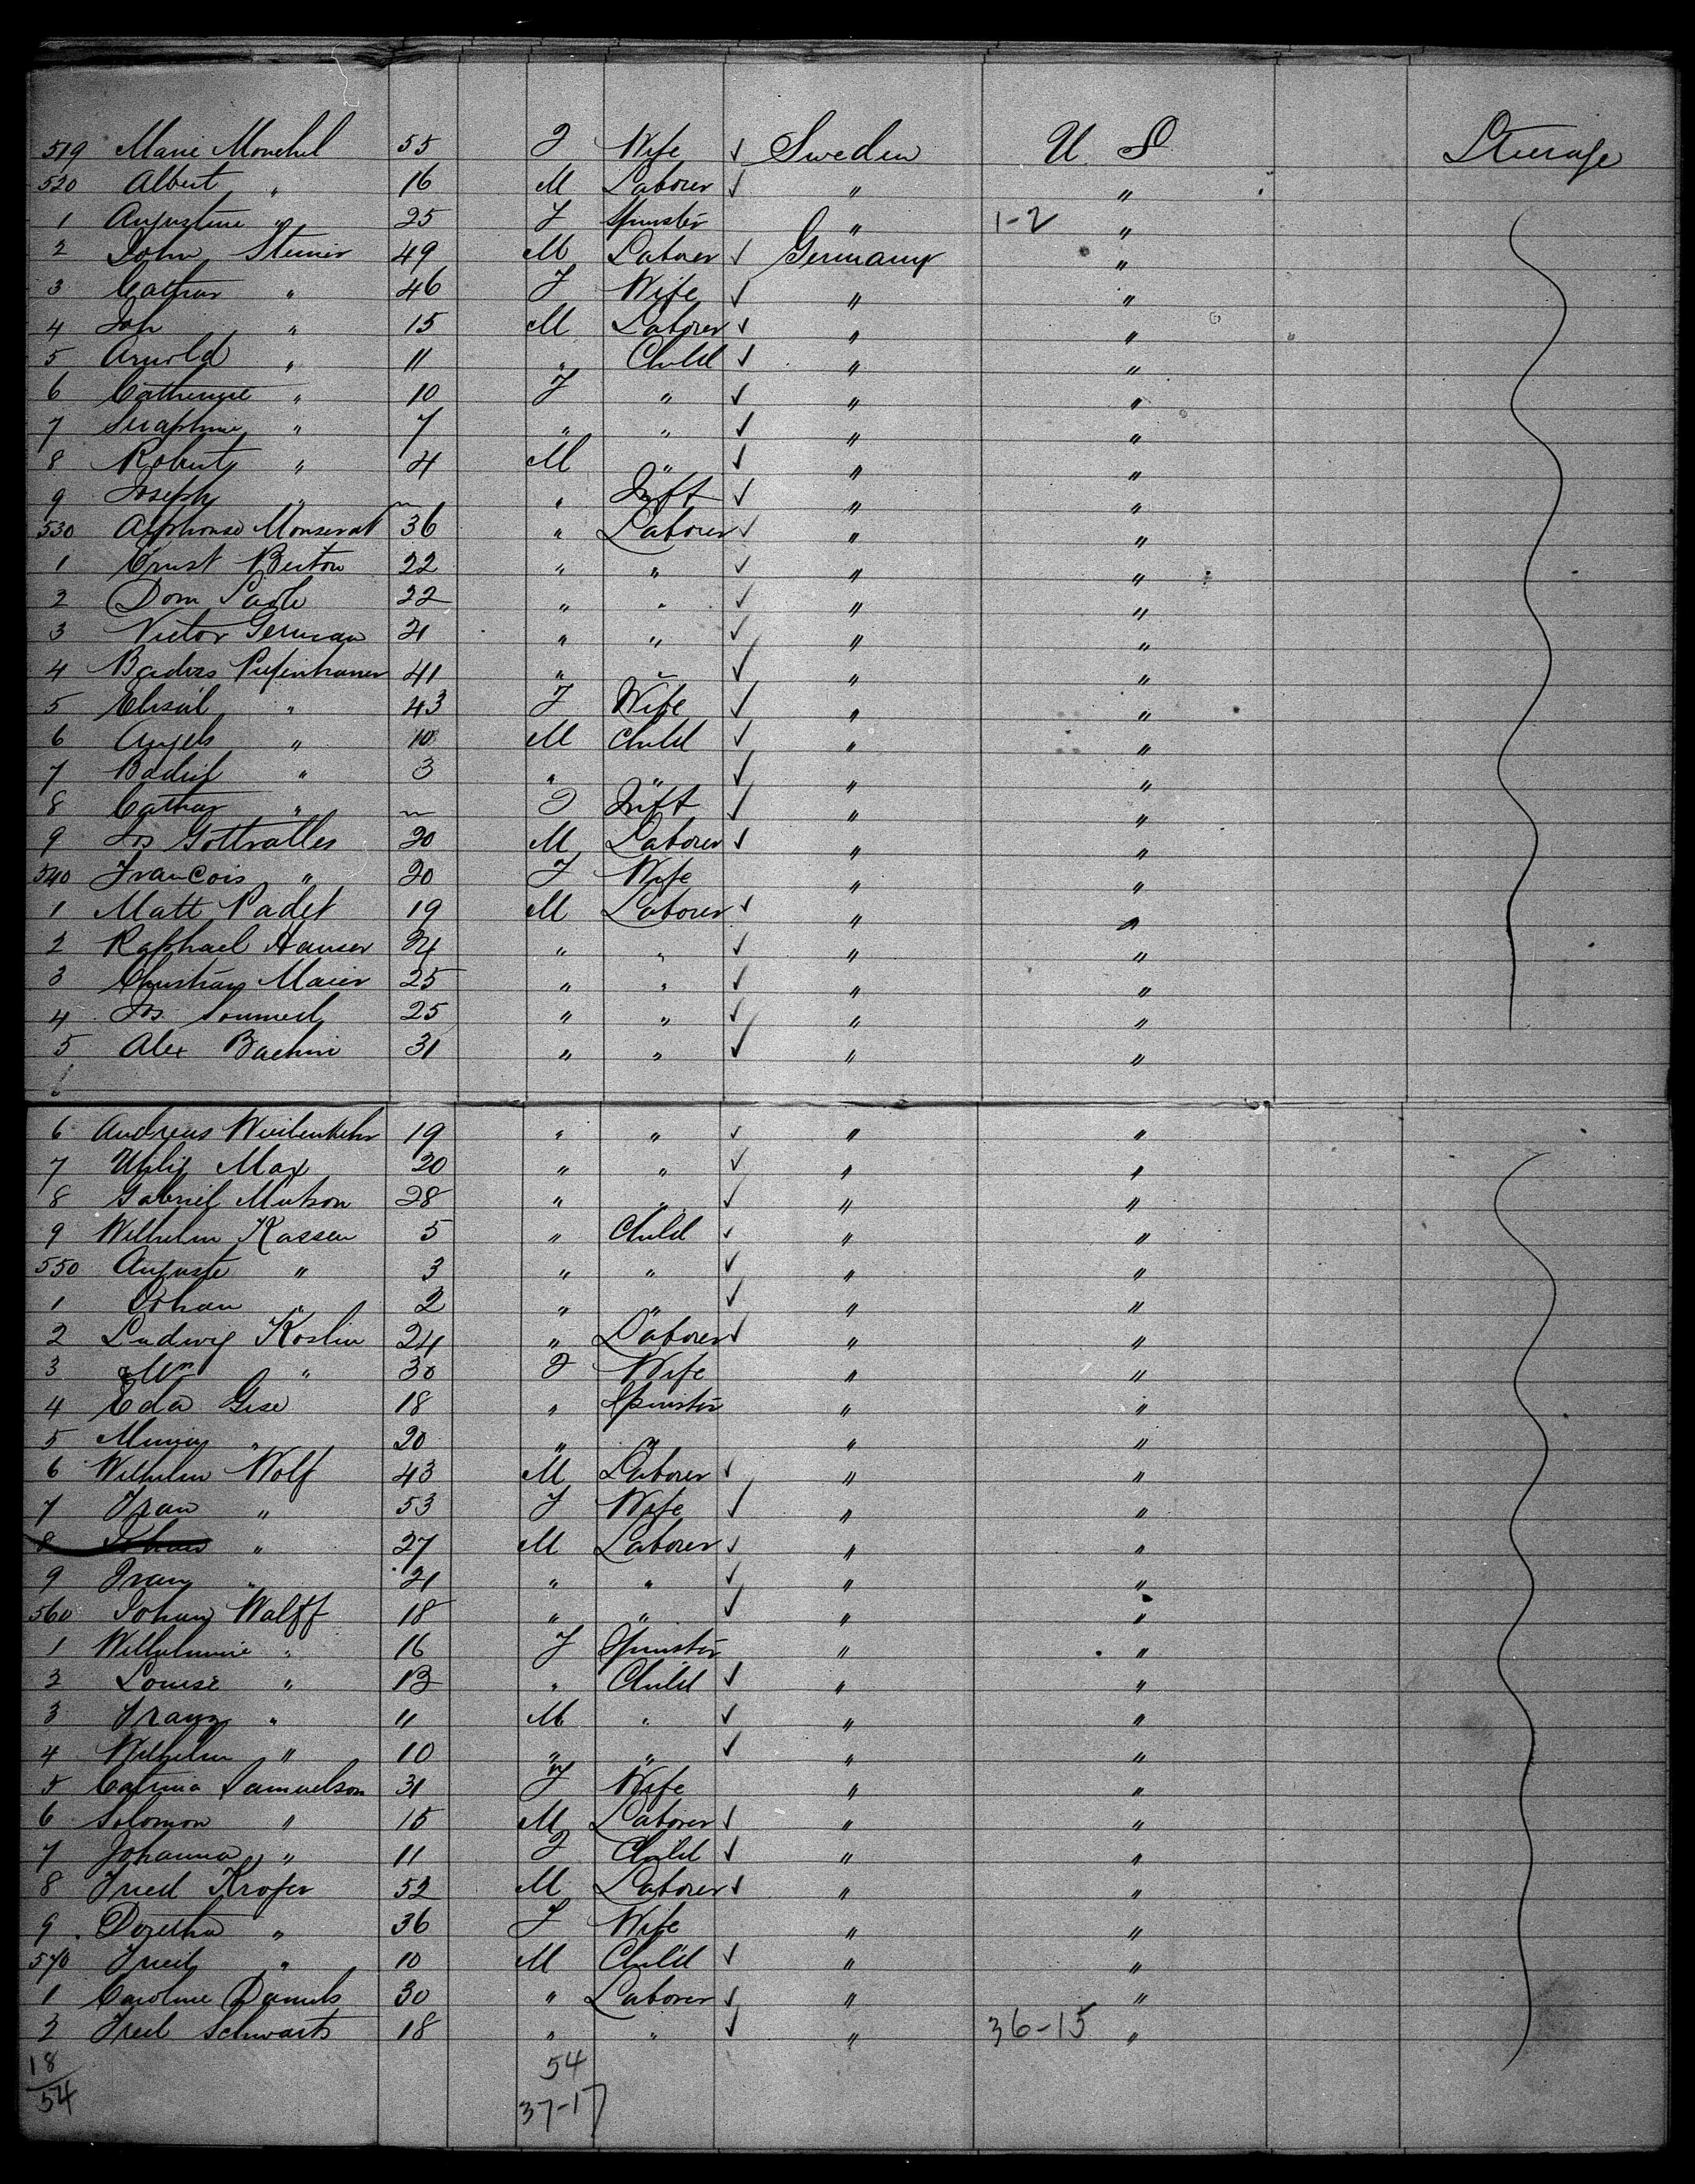 519 Marie Monchel 55 F Wife ✓ Sweden U S Steerage
520 Albert " 16 M Laborer ✓ " "
1 Augustine " 25 F Spinster " 1-2 "
2 John Steinier 49 M Laborer ✓ Germany "
3 Cathar " 46 F Wife ✓ " "
4 Joh " 15 M Laborer ✓ " "
5 Arnold " 11 " Child ✓ " "
6 Catherine " 10 F " ✓ " "
7 Seraphine " 7 " " ✓ " "
8 Robert " 4 M " ✓ " "
9 Joseph " " Inft ✓ " "
530 Alphonse Monserat 36 " Laborer ✓ " "
1 Ernst Berton 22 " " ✓ " "
2 Dom 22 " " ✓ " "
3 Victor German 21 " " ✓ " "
4 41 " " ✓ " "
5 " 43 F Wife ✓ " "
6 Angels " 10 M Child ✓ " "
7 " 3 " " ✓ " "
8 Cathar " F Inft ✓ " "
9 Jos Gottralles 20 M Laborer ✓ " "
540 Francois " 20 F Wife " "
1 Matt Padet 19 M Laborer ✓ " "
2 Raphael Hauser 24 " " ✓ " "
3 Christian Maier 25 " " ✓ " "
4 Jos 25 " " ✓ " "
5 Alex Bachini 31 " " ✓ " "
6
6 Andreas 19 " " ✓ " "
7 Uhlig Max 20 " " ✓ " "
8 Gabriel Mutson 28 " " ✓ " "
9 Wilhelm Kassen 5 " Child ✓ " "
550 Auguste " 3 " " ✓ " "
1 Johan " 2 " " ✓ " "
2 Ludwig Koslin 24 " Laborer ✓ " "
3 " 30 F Wife " "
4 Eda Gise 18 " Spinster " "
5 " 20 " " " "
6 Wilhelm Wolf 43 M Laborer ✓ " "
7 Frau " 53 F Wife ✓ " "
8 Johan " 27 M Laborer ✓ " "
9 Franz " 21 " " ✓ " "
560 Johan Walff 18 " " ✓ " "
1 Wilhelmine " 16 F Spinster " "
2 Louise " 13 " Child ✓ " "
3 Franz " 11 M " ✓ " "
4 Wilhelm " 10 " " ✓ " "
5 Catrina Samuelson 31 F Wife " "
6 Solomon " 15 M Laborer ✓ " "
7 Johanna " 11 F Child ✓ " "
8 Fried Krofer 52 M Laborer ✓ " "
9 Doretha " 36 F Wife " "
570 Fried " 10 M Child ✓ " "
1 Caroline Daniels 30 " Laborer ✓ " "
2 Fred Schwarts 18 " " ✓ " 36-15 "
18 54
54 37-17